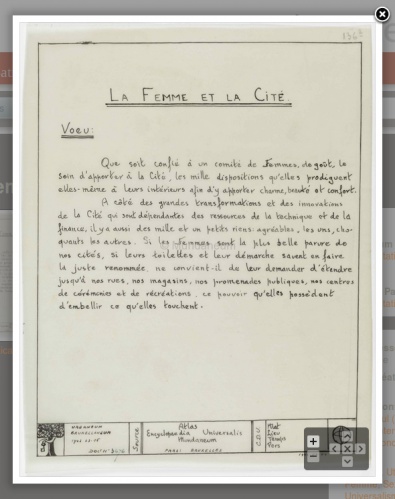 LA FEMME ET LA CITÉ.
Voeu:
Que soit confié à un comité de Femmes, de goût, le
soin d'apporter à la Cité, les mille dispositions qu'elles prodiguent
elles-même à leurs intérieurs afin d'y apporter charme, beauté et confort.
A côté des grandes transformations et des innovations
de la Cité qui sont dépendantes des resources de la technique et de la
finance, il y a aussi des mille et un petits riens agréables, les uns, cho-
quants les autres. Si les Femmes sont la plus belle parure de
nos cités, si leurs toilettes et leur démarche savent en faire
la juste renommée, ne convient-il de leur demander d'étendre
jusqu'à nos rues, nos magasins, nos promenades publiques, nos centres
de cérémonies et de récréations, ce pouvoir qu'elles possèdent
d'embellir ce qu'elles touchent.
MUNDANEUM
Atlas
Encyclopaedia Universalis
Mundaneum
PARIS BRUXELLES
Mat
Lieu
Temps